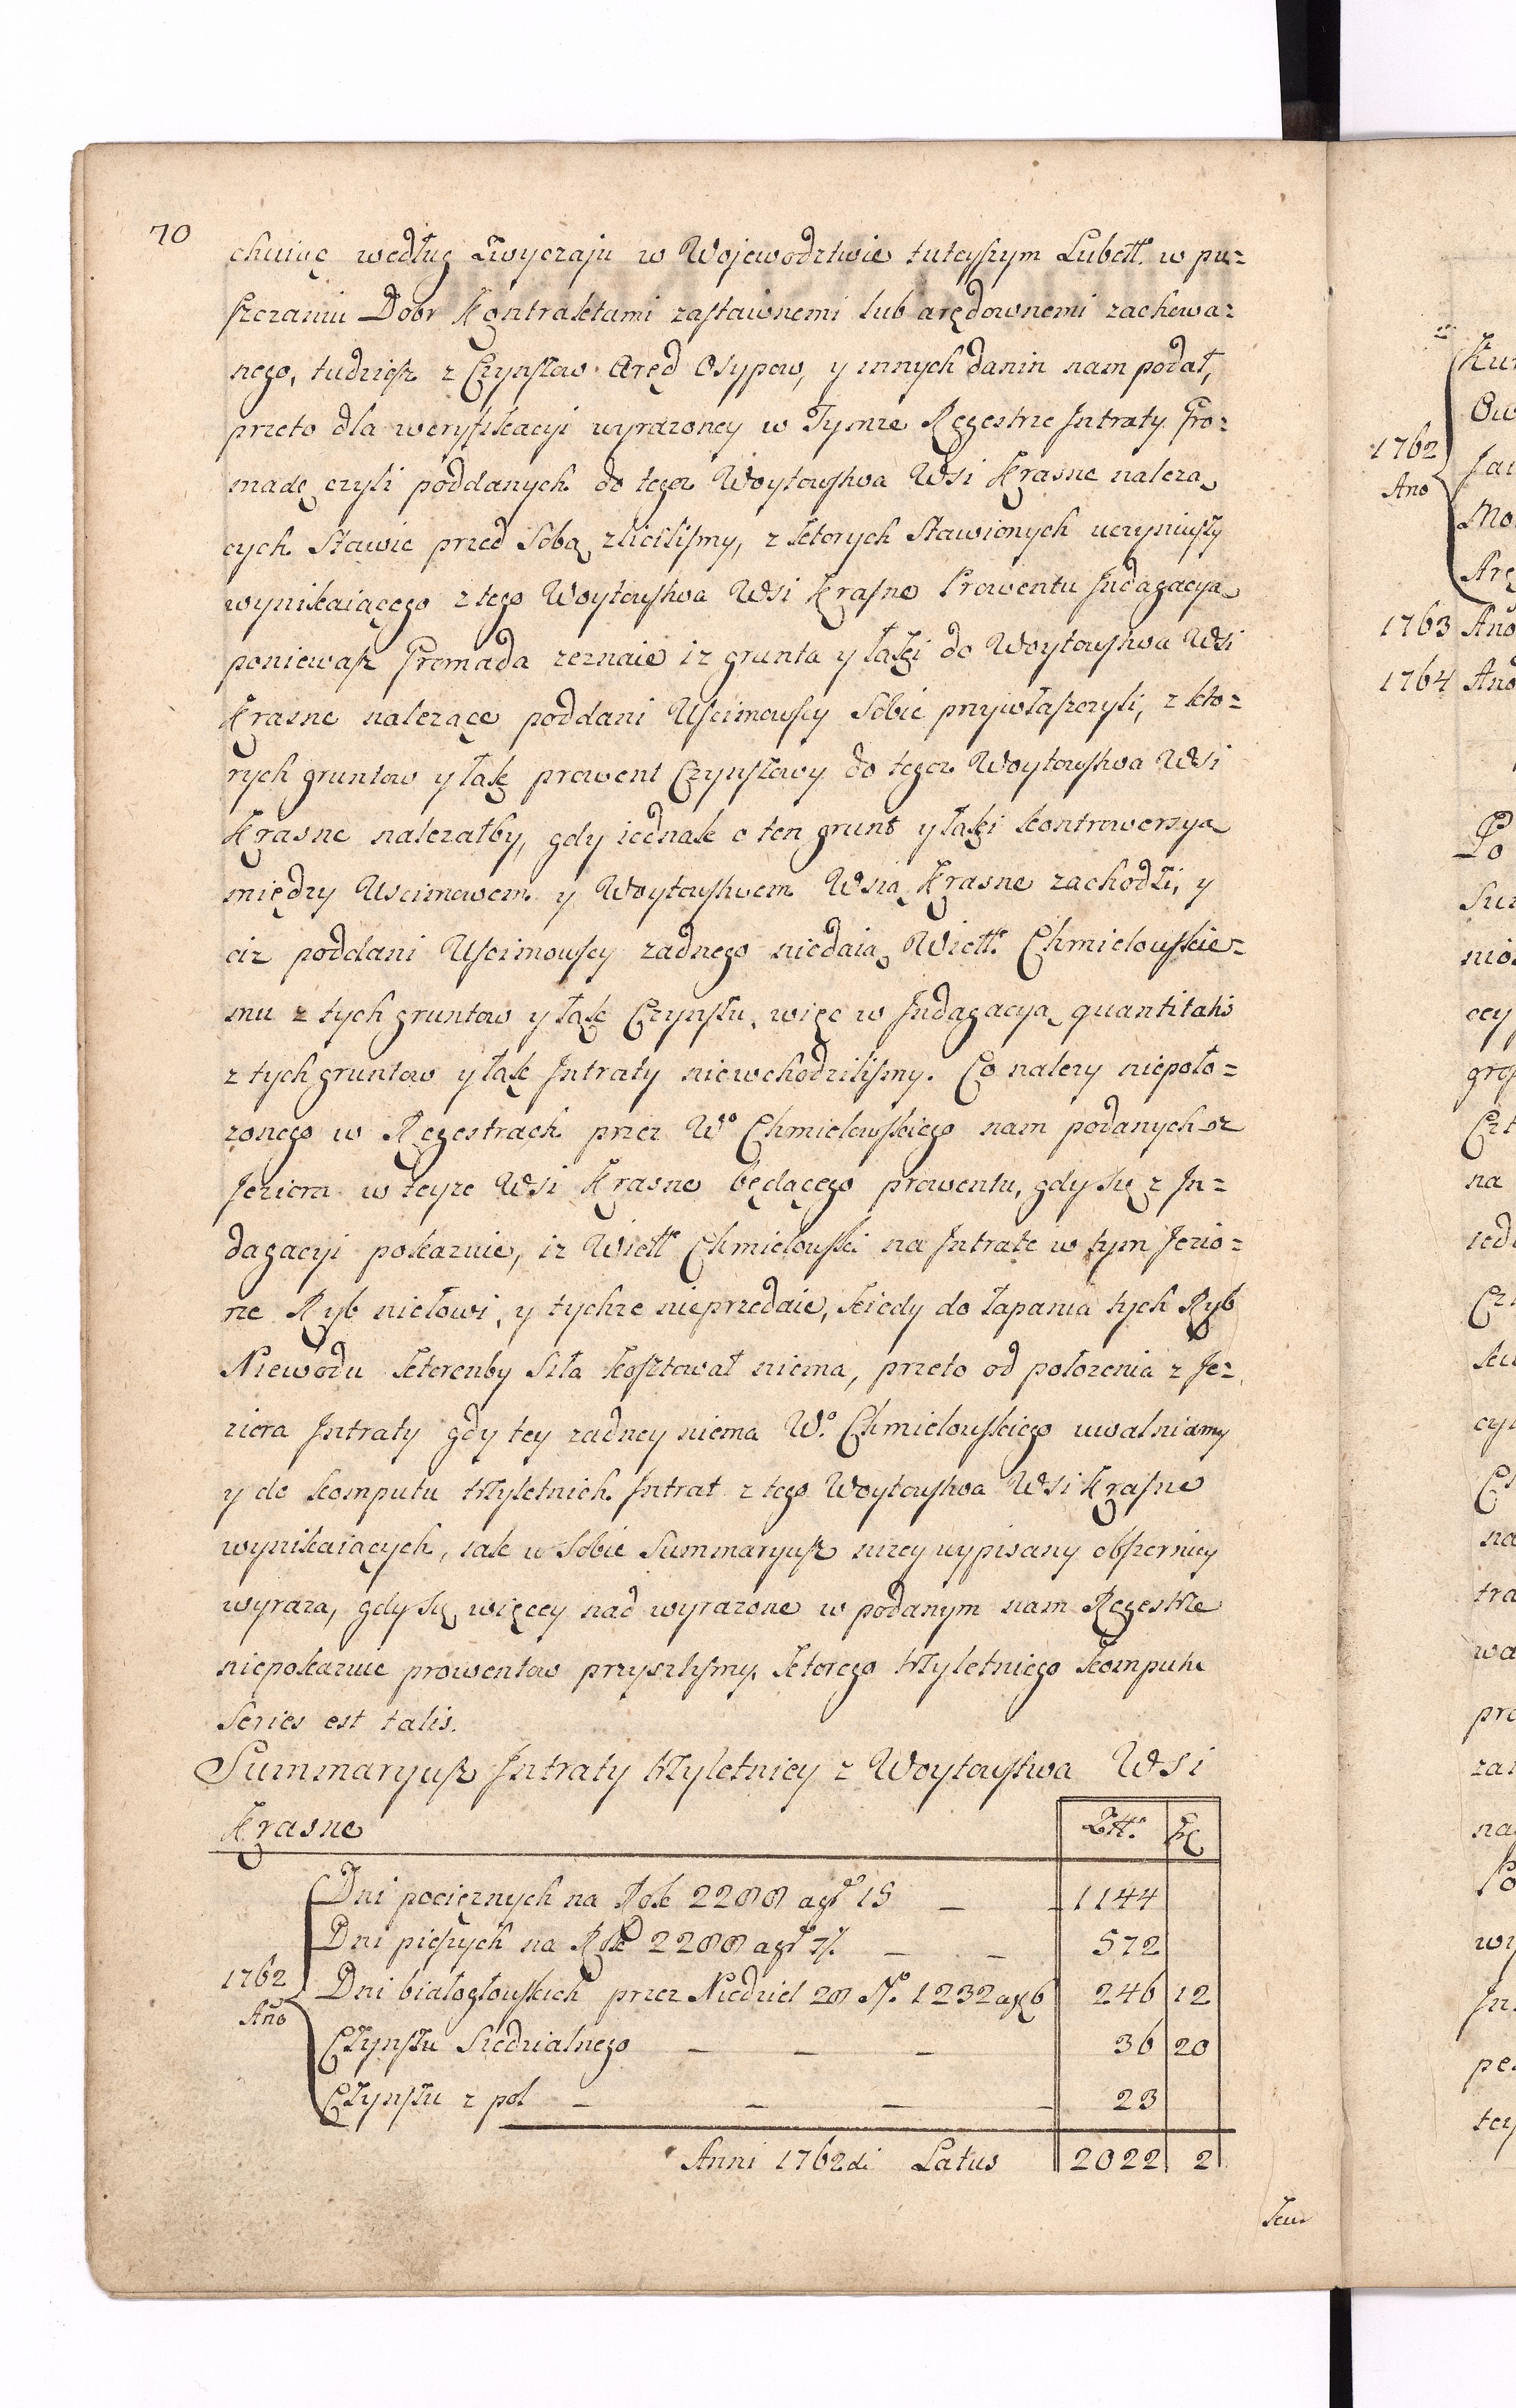 70
chuiię według Zwyczaju w Wojewodztwie tuteyszym Lubell. w pu=
szczaniu Dobr Kontraktami zastawnemi lub arędownemi zachowa=
nego, tudziesz z Czynszow Aręd Osypow, y innych danin nam podał,
przeto dla weryfikacyi wyrazoney w Tymze Regestrze Intraty Gro=
madę czyli poddanych do tegoz Woytowstwa Wsi Krasne naleza
cych Stawic przed Sobą zliciliśmy, z ktorych Stawionych uczyniwszy
wynikaiącego z tego Woytowstwa Wsi Krasne Prowentu Indagacyą
poniewasz Gromada zeznaie iz grunta y łąki do Woytowstwa Wsi
Krasne nalezące poddani Uscimowscy Sobie przywłaszczyli, z kto=
rych gruntow y łąk prowent Czynszowy do tegoz Woytowstwa Wsi
Krasne nalezałby, gdy iednak o ten grunt y łąki kontrowersya
między Uscimowem y Woytowstwem Wsią Krasne zachodzi, y
ciz poddani Uscimowscy zadnego niedaią Wielℓ. Chmielowskie=
mu z tych gruntow y łąk Czynszu, więc w Indagacyą quantitatis
z tych gruntow y łąk Intraty niewchodziliśmy. Co nalezy niepoło=
zonego w Regestrach przez Wo Chmielowskiego nam podanych z
Jeziora w teyze Wsi Krasne będącego prowentu, gdy się z In=
dagacyi pokazuie, iz Wielℓ Chmielowski na Intratę w tym Jezio=
rze Ryb niełowi, y tychze nieprzedaie, kiedy do łapania tych Ryb
Niewodu ktorenby Siła kosztował niema, przeto od połozenia z Je=
ziora Intraty gdy tey zadney niema Wo. Chmielowskiego uwalniamy
y do komputu trzyletnich Intrat z tego Woytowstwa Wsi Krasne
wynikaiących, iak w Sobie Summaryusz nizey wypisany obszerniey
wyraza, gdy się więcey nad wyrazone w podanym nam Regestrze
niepokazuie prowentow przyszliśmy, ktorego trzyletniego komputu
Series est talis.
Summaryusz Intraty trzyletniey z Woytowstwa Wsi
Krasne Złł. gr
Dni pocięznych na Rok 2288 a gr 15 — — 1144
Dni pieszych na Rok 2288 a gr 7/. — — 572
1762 Ano Dni białogłowskich przez Niedziel 28 No. 1232 a gr 6 246 12
Czynszu Siedzialnego — — — 36 20
Czynszu z pol — — — — 23
Anni 1762di Latus 2022 2